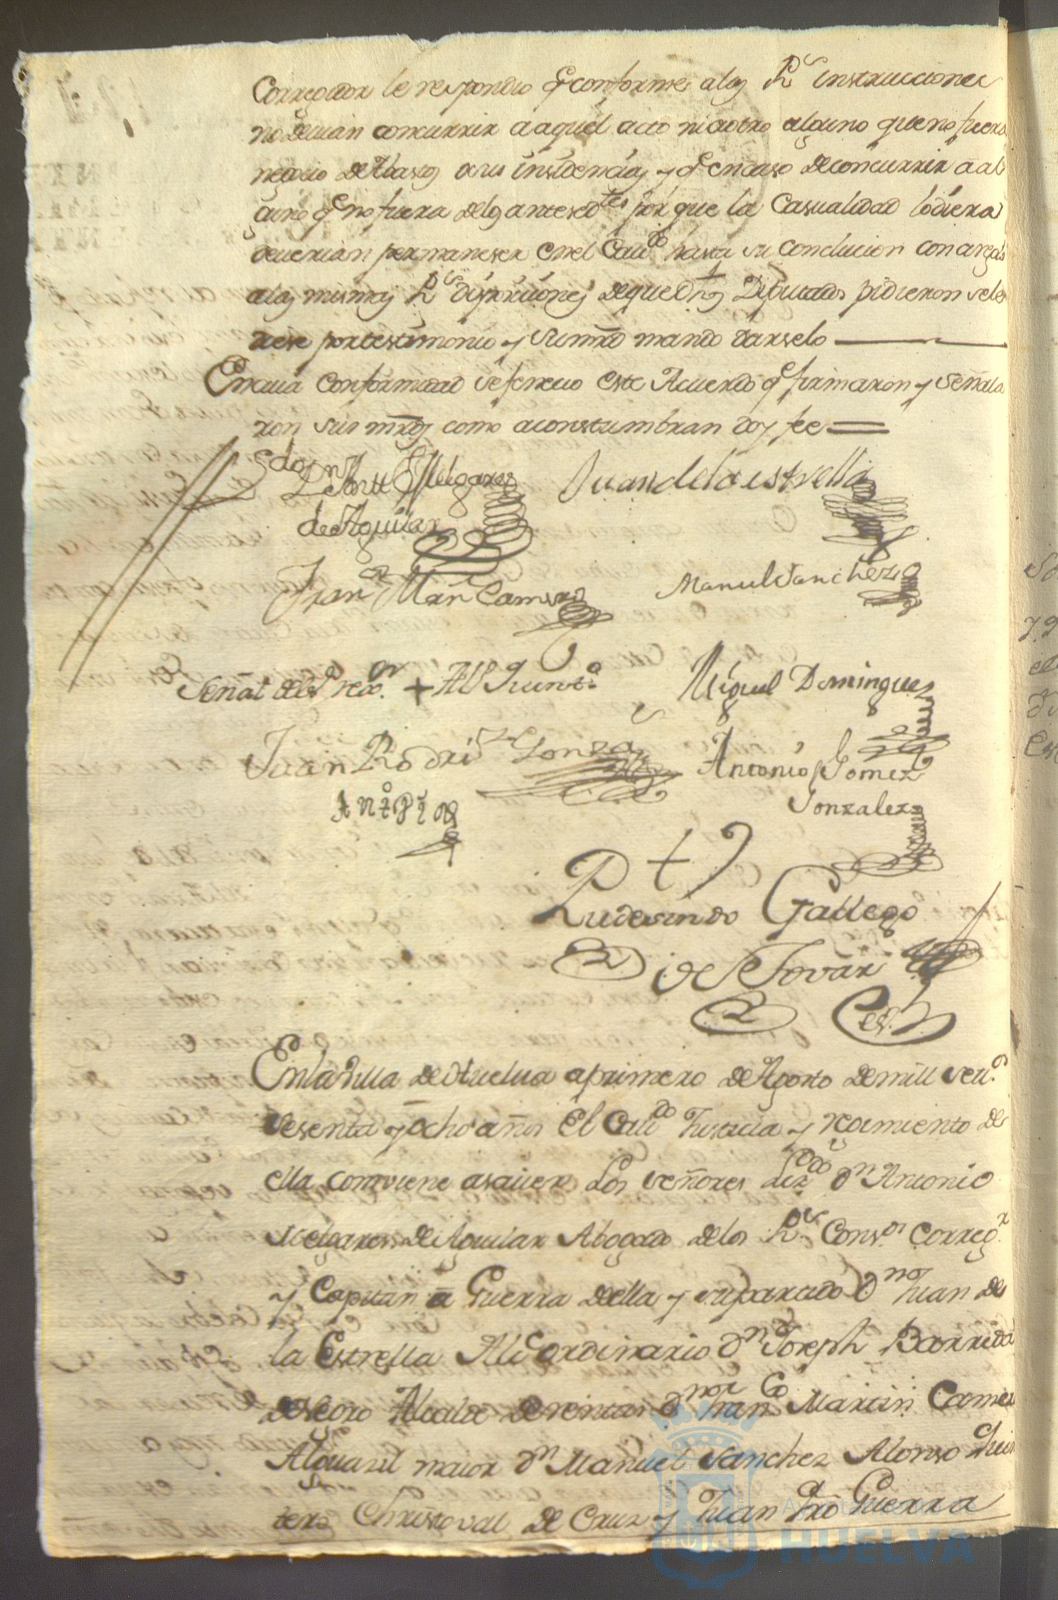 Corregidor le respondio q.e conforme a las R.s instrucciones
no devian concurrir a aquel acto ni a otro alguno que no fuera
negocio de Abastos o sus insidencias y q.e en caso de concurrir a al
guno q.e no fuera de los antesed.tes por que la Casualidad lo diera
deverian permaneser en el Cav.do hasta su conclucion con arreglo
a las mismas R.s dispociciones de que d.hos Diputados pidieron se les
diese por testimonio y su mrd mando darselo
En cuia Conformidad se feneció este Acuerdo q.e firmaron y señala
ron sus mrds como aconstumbran doy fee
Ldo Dn Antt Melgarejo
de Aguilar
Juan de la estrella
Fran.co Marn Camero
Manuel Sanchez
Señal del S.r rex.or + Al.o Quint.o
Miguel Dominguez
Juan Rodri.z Gonza.s
Antonio Gomez
Gonzalez
Antt.o Pi
Rudesindo Gallego
de Tovar
es.no
En la Villa de Huelva a primero de Agosto de mill setz.os
sesenta y Ocho años El Cav.do Justicia y reximiento de
ella combiene a saver Los señores Liz.do d.n Antonio
Melgarejo de Aguilar Abogado de los R.s Cons.os Correg.r
y Capitan a Guerra de ella y su partido D.n Juan de
la Estrella Alc.e ordinario D.n Joseph Barreda
Alcalde de rentas D.n Fran.co Martin Camero
Alguasil maior D.n Manuel Sanchez Alonso Quin
tero Christoval de Cruz y Juan Guerra
HUELVA